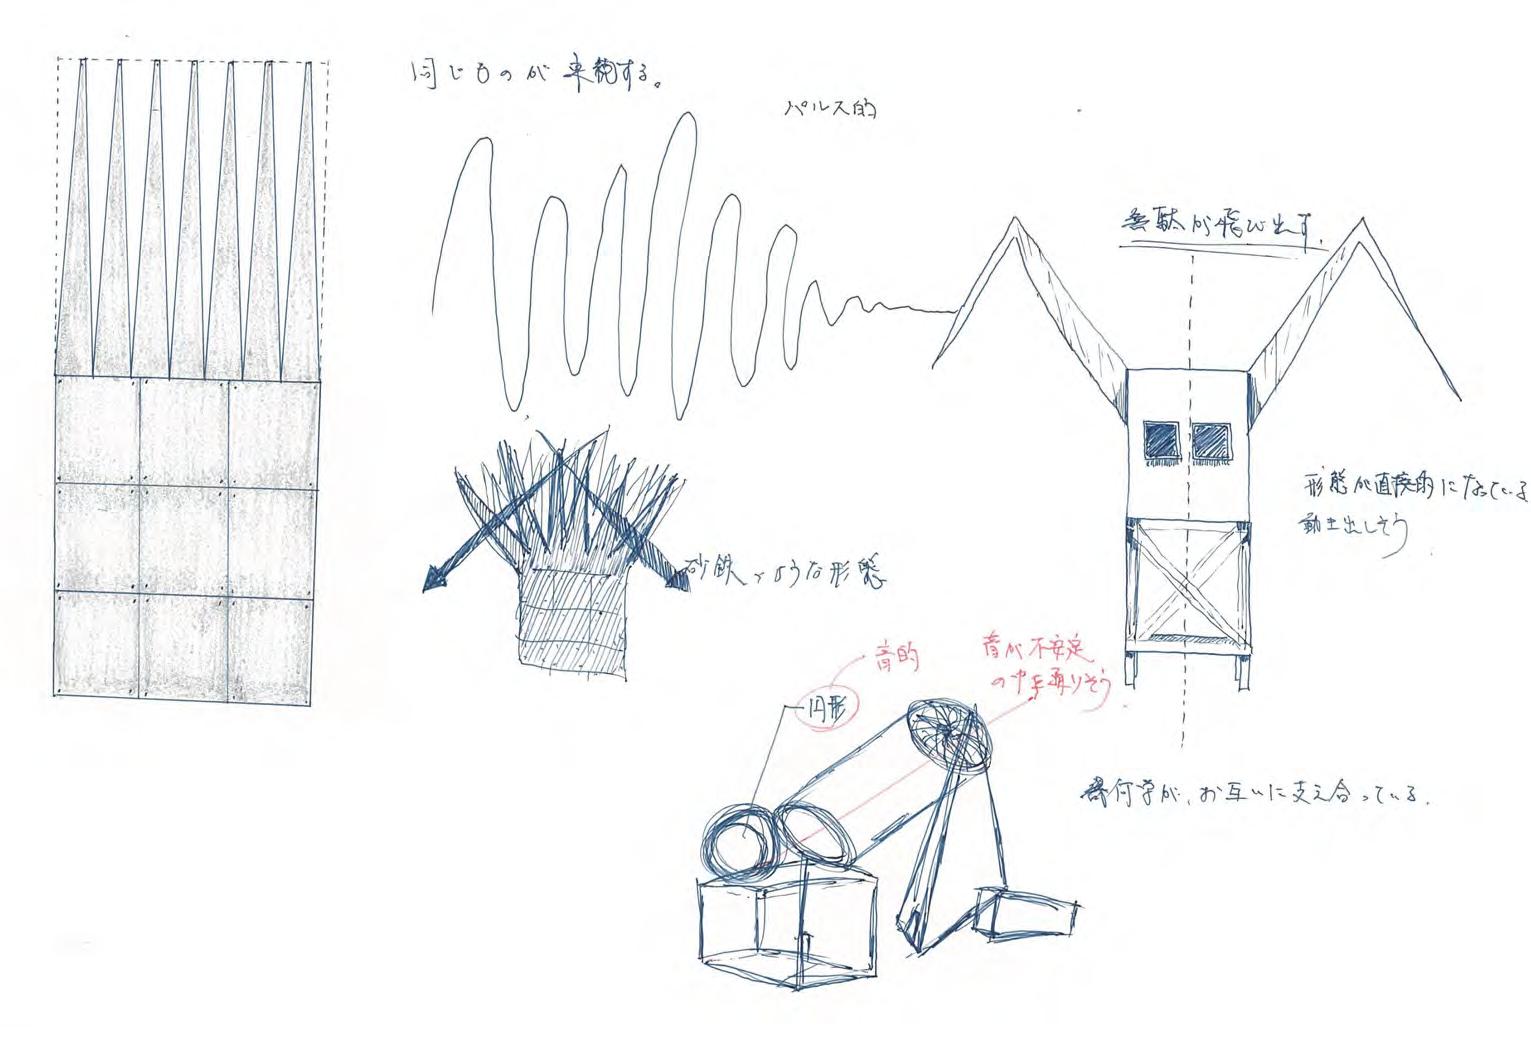 同じものが連続する。
パルス的
無駄が飛び出す。
形態が直接的になっている
動き出しそう
砂鉄のような形態
音的
音が不安定
の中を通りそう
円形
幾何学が、お互いに支え合っている。